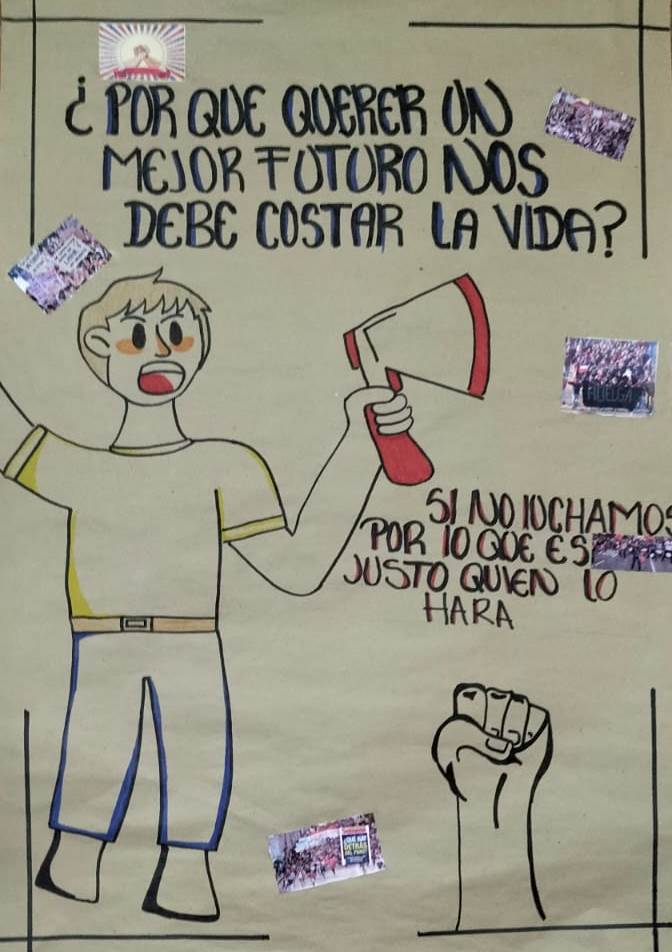 ¿POR QUE QUERER UN
MEJOR FUTURO NOS
DEBE COSTAR LA VIDA?
HUELGA
SI NO lUCHAMOS
POR lO QUE ES
JUSTO QUIEN LO
HARA
¿QUÉ HAY
DETRÁS
DEL PARO?